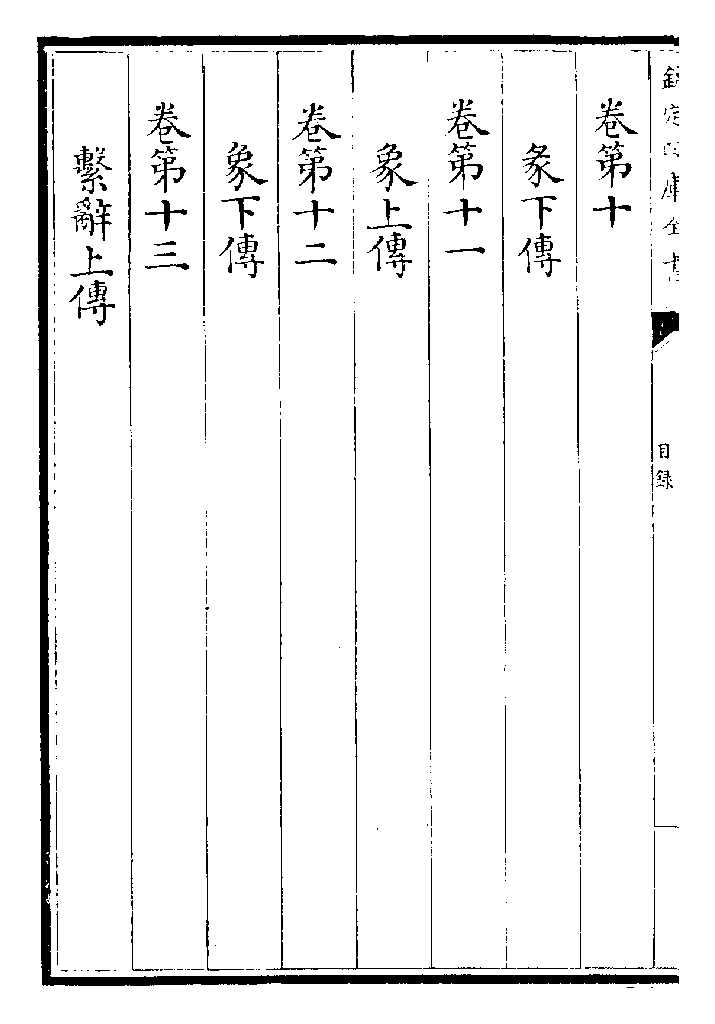 欽定四庫全書
目録
卷第十
彖下傳
卷第十一
象上傳
卷第十二
象下傳
卷第十三
繫辭上傳